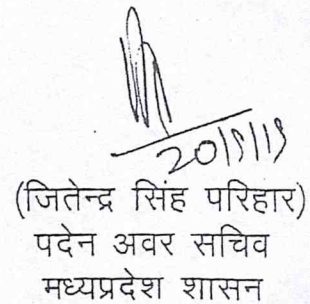 20/9/19
(जितेन्द्र सिंह परिहार)
पदेन अवर सचिव
मध्यप्रदेश शासन